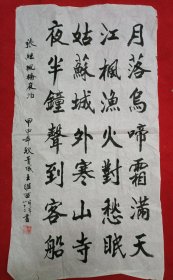 月落烏啼霜滿天
江楓漁火對愁眠
姑蘇城外寒山寺
夜半鐘聲到客船
張繼楓橋夜泊
甲申年秋